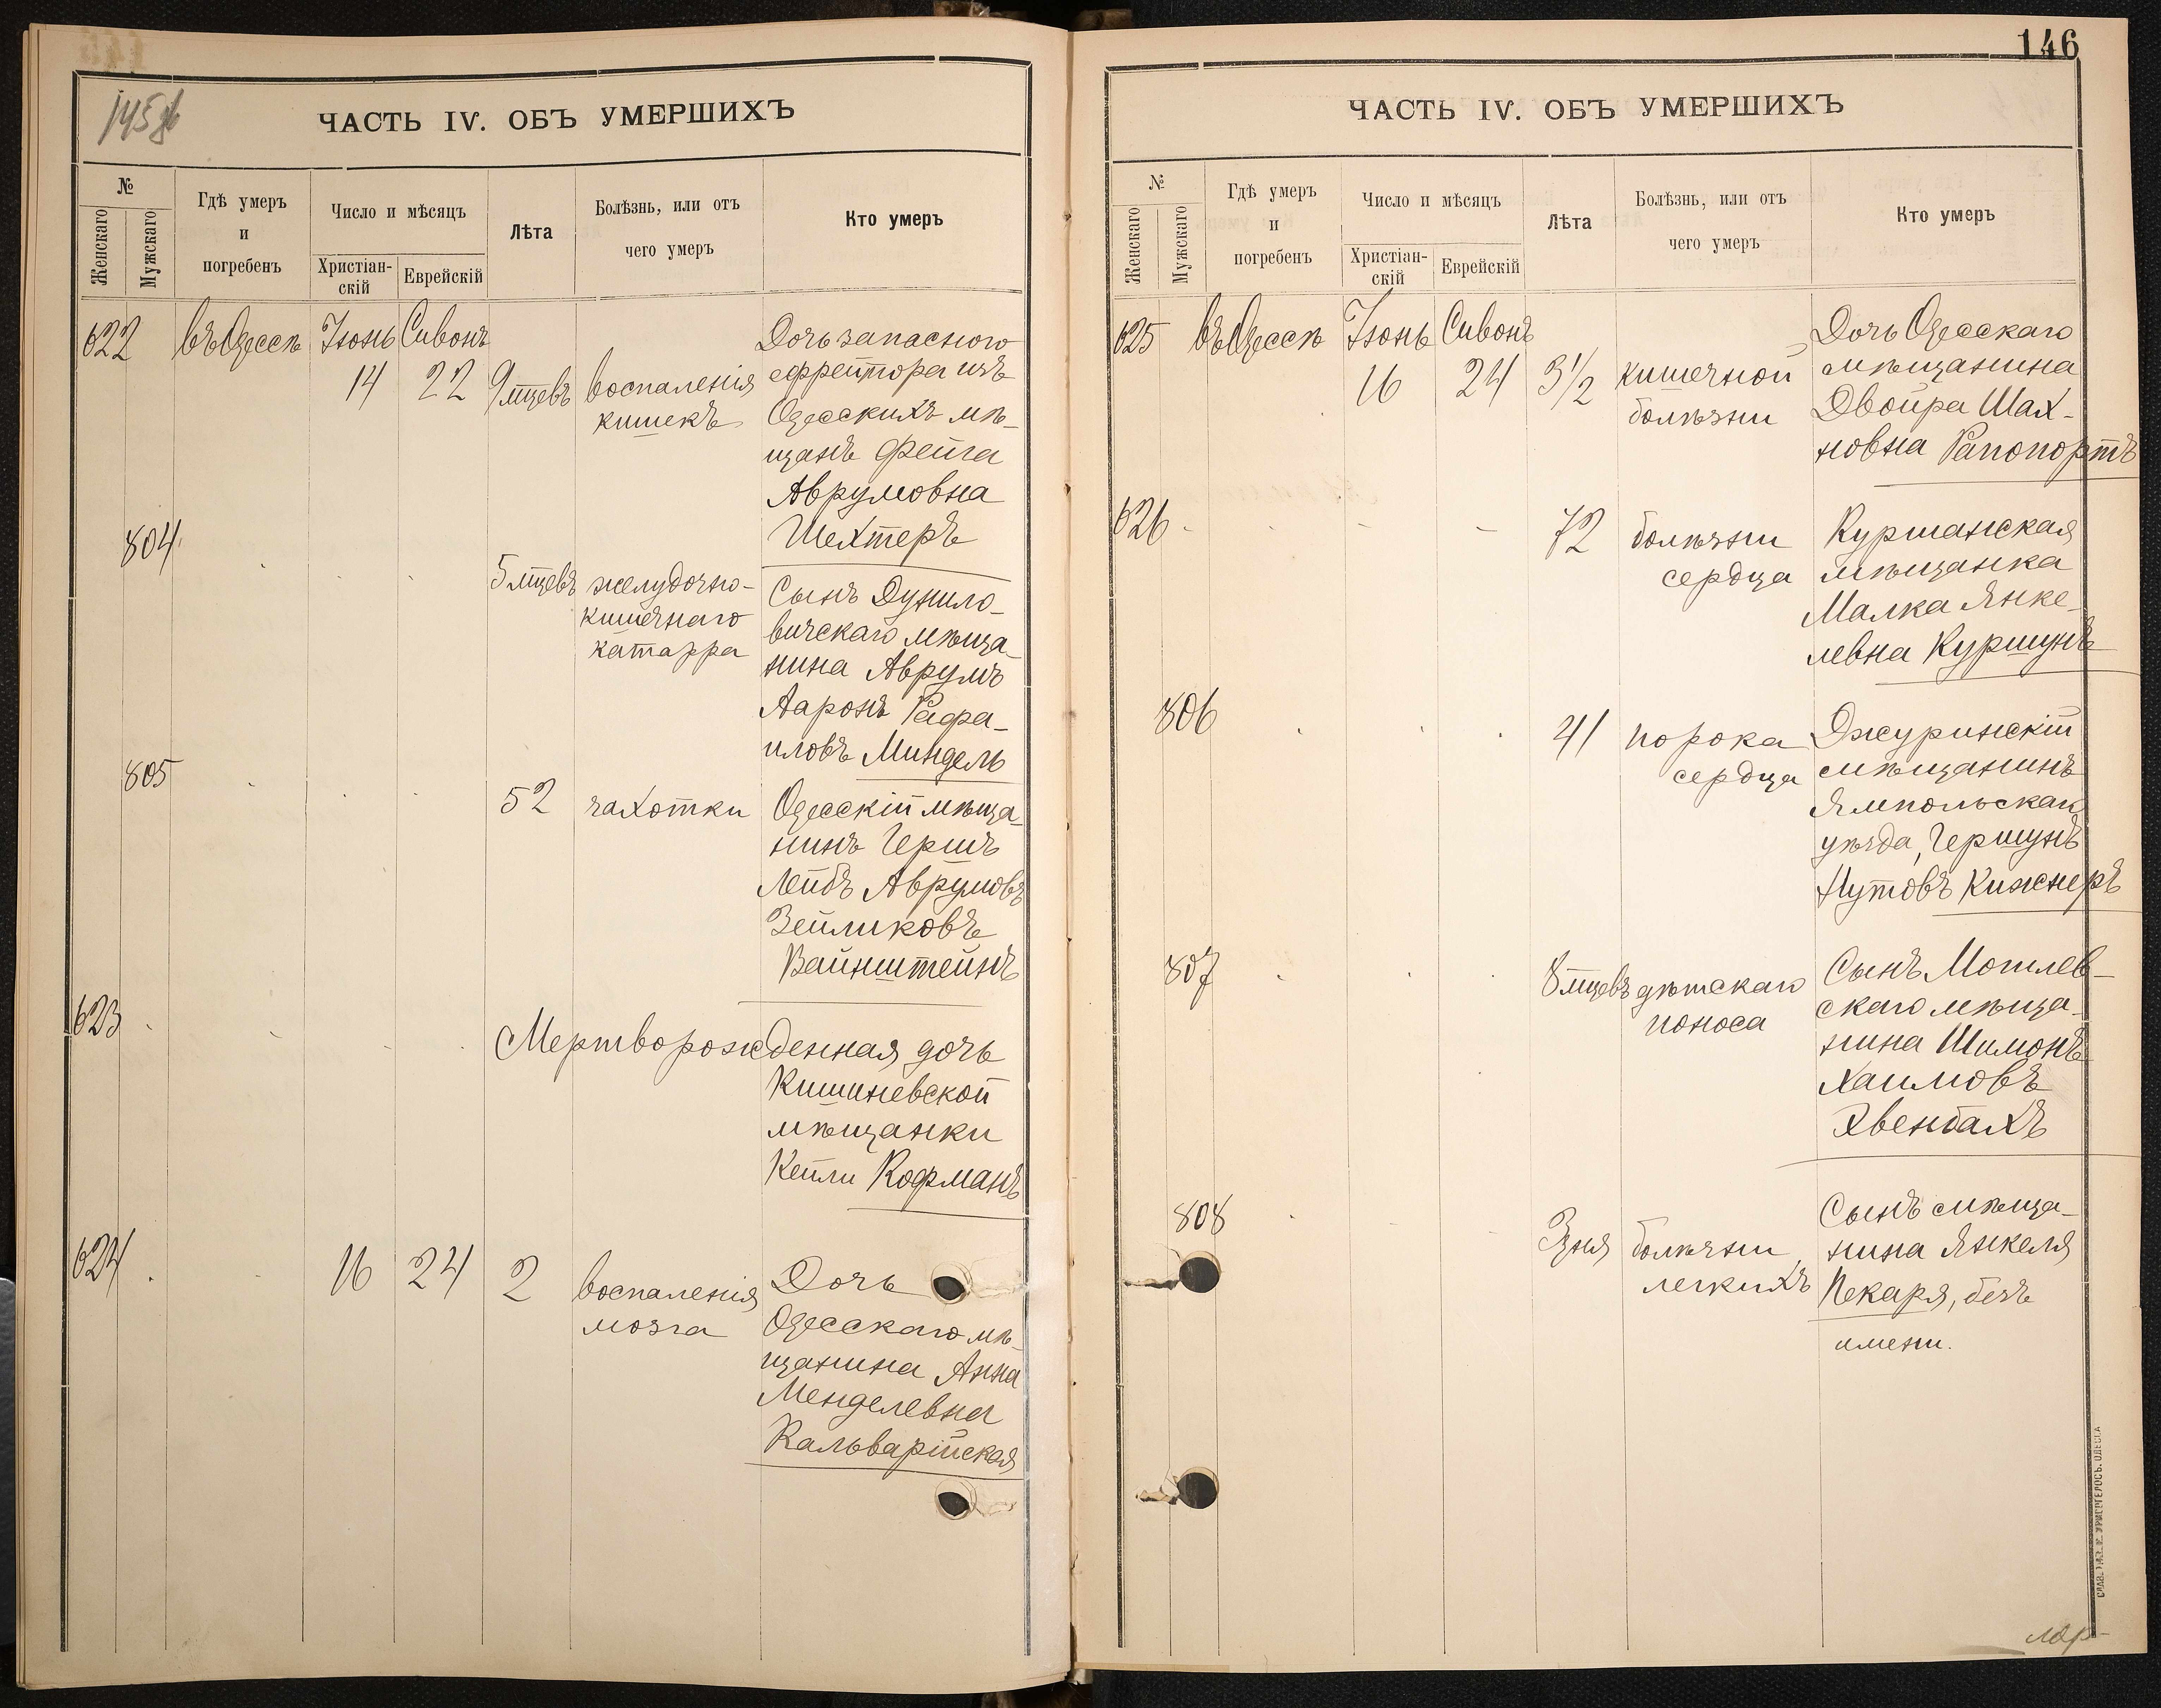 ЧАСТЬ IV. ОБЪ УМЕРШИХЪ
№
Женскаго
Мужскаго
Гдѣ умеръ
и
погребенъ
Число и мѣсяцъ
Христіан-
скій
Еврейскій
Лѣта
Болѣзнь, или отъ
чего умеръ
Кто умеръ
622 въ Одессѣ Іюнь Сивонъ
14 22 9 мцевъ
воспаленія
кишекъ
Дочь запаснаго
ефрейтора изъ
Одесскихъ мѣ-
щанъ Фейга
Аврумовна
Шехтеръ
804
5 мцевъ
желудочно-
кишечнаго
катарра
Сынъ Дунило-
вичскаго мѣща-
нина Аврумъ
Ааронъ Рафа-
иловъ Миндель
805
52 чахотки
Одесскій мѣща-
нинъ Гершъ
Лейбъ Аврумовъ
Зейликовъ
Вайнштейнъ
623
Мертворожденная дочь
Кишиневской
мѣщанки
Кейли Кофманъ
624
16 24 2
воспаленія
мозга
Дочь
Одесскаго мѣ-
щанина Анна
Менделевна
Кальварійская
146
ЧАСТЬ IV. ОБЪ УМЕРШИХЪ
№
Женскаго
Мужскаго
Гдѣ умеръ
и
погребенъ
Число и мѣсяцъ
Христіан-
скій
Еврейскій
Лѣта
Болѣзнь, или отъ
чего умеръ
Кто умеръ
625 въ Одессѣ Іюнь Сивонъ
16 24 3½
кишечной
болѣзни
Дочь Одесскаго
мѣщанина
Двойра Шах-
новна Рапопортъ
626
72
болѣзни
сердца
Куршанская
мѣщанка
Малка Янке-
левна Куршунъ
806
41
порока
сердца
Джуринскій
мѣщанинъ
Ямпольскаго
уѣзда, Гершунъ
Нутовъ Кижнеръ
807
8 мцевъ
дѣтскаго
поноса
Сынъ Могилев-
скаго мѣща-
нина Шимонъ
Хаимовъ
Явенбахъ
808
3 дня
болѣзни
легкихъ
Сынъ мѣща-
нина Янкеля
Пекаря, безъ
имени.